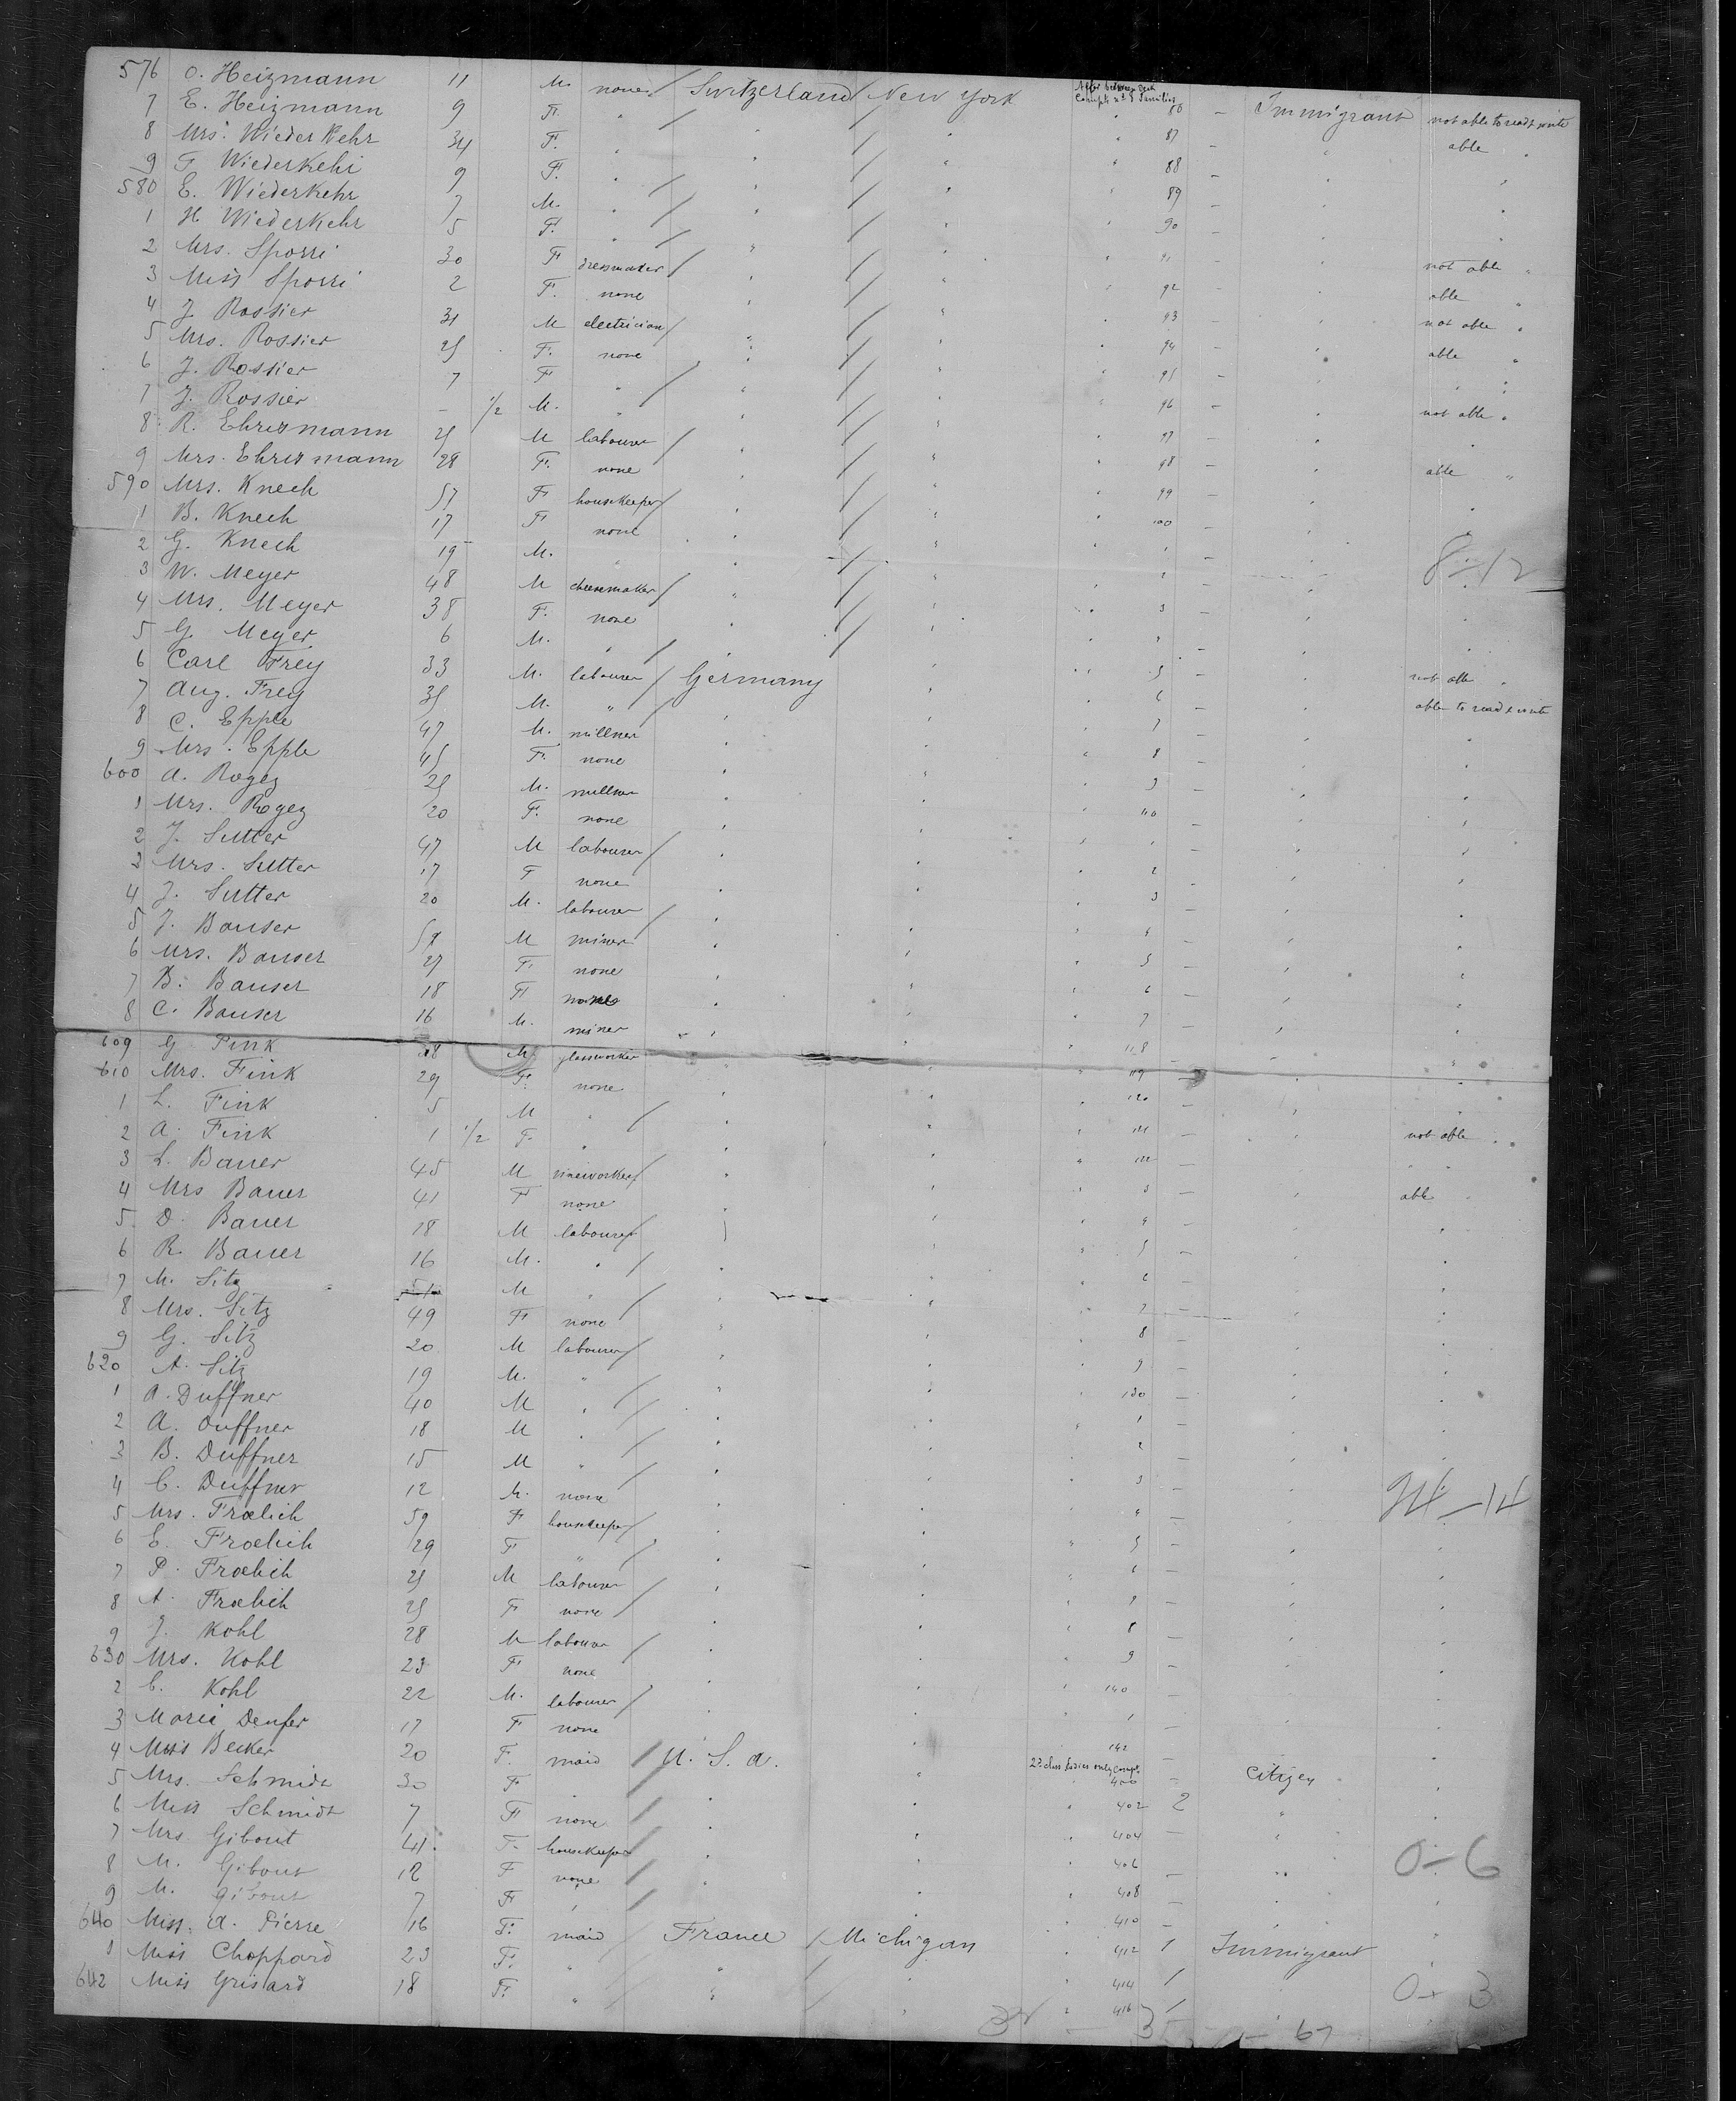 576 O. Heizmann 11 M. none / Switzerland / New York 86 - Immigrant not able to read & write
7 E. Heizmann 9 F. " / " / " " 87 - " able "
8 Mrs. Wiederkehr 34 F. " " / " " 88 - " "
9 F Wiederkehr 9 F. " / " / " " 89 - " "
580 E. Wiederkehr 7 M. " / " / " " 90 - " "
1 H Wiederkehr 5 F. " / " / " " 91 - " not able "
2 Mrs. Sporri 30 F dressmaker / " / " " 92 - " able "
3 Miss Sporri 2 F. none " / " " 93 - " not able "
4 J. Rossier 31 M electrician / " / " " 94 - " able "
5 Mrs. Rossier 25 F. none " / " " 95 - " " "
6 J. Rossier 7 F " / " / " " 96 - " not able "
7 J. Rossier - 1/2 M. " / " / " " 97 - " "
8 R. Ehrismann 25 M labourer / " / " " 98 - " able "
9 Mrs. Ehrismann 28 F. none " / " " 99 - " "
590 Mrs. Knech 57 F housekeeper / " / " " 100 - " "
1 B. Knech 17 F none " / " " 1 - "
2 G. Knech 19 M. " / " " 2 - " 8-12
3 W. Meyer 48 M cheesemaker / " / " " 3 - "
4 Mrs. Meyer 38 F. none " / " " - "
5 G. Meyer 6 M. " / / " " 5 - " not able "
6 Carl Frey 33 M. labourer / Germany " " 6 - " able to read & write
7 Aug. Frey 35 M. " / " " " 7 - " "
8 C. Epple 47 M. millner " " " 8 - " "
9 Mrs. Epple 45 F. none " " " 9 - " "
600 A. Rogez 25 M. millner " " " 110 - " "
1 Mrs. Rogez 20 F. none " " " 1 - " "
2 J. Sutter 47 M labourer / " " " 2 - " "
3 Mrs. Sutter 17 F none " " " 3 - " "
4 J. Sutter 20 M. labourer / " " " 4 - " "
5 J. Bauser M miner " " " 5 - " "
6 Mrs. Bauser 27 F. none " " " 6 - " "
7 B. Bauser 18 F none " " " 7 - " "
8 C. Bauser 16 M. miner " " " 118 - " "
609 G Fink 28 M. glassworker " " " 119 - " "
610 Mrs. Fink 29 F. none " " " 120 - " "
1 L. Fink 5 M " / " " " 121 - " not able "
2 A. Fink 1 1/2 F. " " " " 122 - " "
3 L. Bauer 45 M vineworker / " " " 3 - " able "
4 Mrs Bauer 41 F none " " " 4 - " "
5 D. Bauer 18 M labourer / " " " 5 - " "
6 R. Bauer 16 M. " / " " " 6 - " "
7 M. Sitz M " / " " " 7 - " "
8 Mrs. Sitz 49 F none " " " 8 - " "
9 G. Sitz 20 M labourer / " " " 9 - " "
620 A. Sitz 19 M. " / " " " 130 - " "
1 A. Duffner 40 M " / " " " 1 - " "
2 A. Duffner 18 M " / " " " 2 - " "
3 B. Duffner 15 M " / " " " 3 - "
4 C. Duffner 12 M. none " " " 4 - " 24-14
5 Mrs. Froelich 59 F housekeeper / " " " 5 - " "
6 E. Froelich 29 F " / " " " 6 - " "
7 P. Froelich 25 M labourer / " " " 7 - " "
8 A. Froelich 25 F none / " " " 8 - " "
9 J. Kohl 28 M labourer / " " " 9 - " "
630 Mrs. Kohl 23 F none " " " 140 - " "
2 C. Kohl 22 M. labourer / " " " 1 - " "
3 Maria Denfer 17 F none " " 142 - " "
4 Miss Becker 20 F. maid // U. S. A. " 2d class ladies only 400 - Citizen "
5 Mrs. Schmidt 30 F / " " " 402 2 " "
6 Miss Schmidt 7 F none / " " " 404 - "
7 Mrs. Gibout 41. F. housekeeper / " " " 406 - " 0-6
8 M. Gibout 12 F none / " " " 408 - " "
9 M. Gibout 7 F " / " " " 410 - " "
640 Miss. A. Pierre 16 F. maid France / Michigan " 412 1 Immigrant "
1 Miss Choppard 23 F. " " / " " 414 / " 0-3
642 Miss Grisard 18 F. " " / " " 416 / "
35 - 67